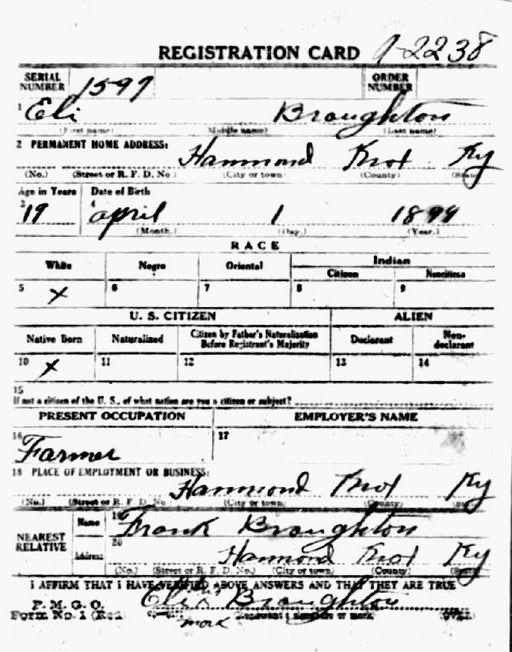 REGISTRATION CARD 9-2238
SERIAL NUMBER 1599 ORDER NUMBER
1 Eli Broughton
(First name) (Middle name) (Last name)
2 PERMANENT HOME ADDRESS:
Hammond Knox Ky
(No.) (Street or R. F. D. No.) (City or town) (County) (State)
Age in Years Date of Birth
3 19 4 April 1 1899
(Month.) (Day.) (Year.)
RACE
White Negro Oriental Indian
Citizen Noncitizen
5 x 6 7 8 9
U. S. CITIZEN ALIEN
Native Born Naturalized Citizen by Father's Naturalization Before Registrant's Majority Declarant Non-declarant
10 x 11 12 13 14
15
If not a citizen of the U. S., of what nation are you a citizen or subject?
PRESENT OCCUPATION EMPLOYER'S NAME
16 Farmer 17
18 PLACE OF EMPLOYMENT OR BUSINESS:
Hammond Knox Ky
(No.) (Street or R. F. D. No.) (City or town) (County) (State)
NEAREST RELATIVE Name 19 Frank Broughton
Address 20 Hammond Knox Ky
(No.) (Street or R. F. D. No.) (City or town) (County) (State)
I AFFIRM THAT I HAVE VERIFIED ABOVE ANSWERS AND THAT THEY ARE TRUE
P. M. G. O.
Form No. 1 (Red) Eli x Broughton
mark (Registrant's signature or mark)